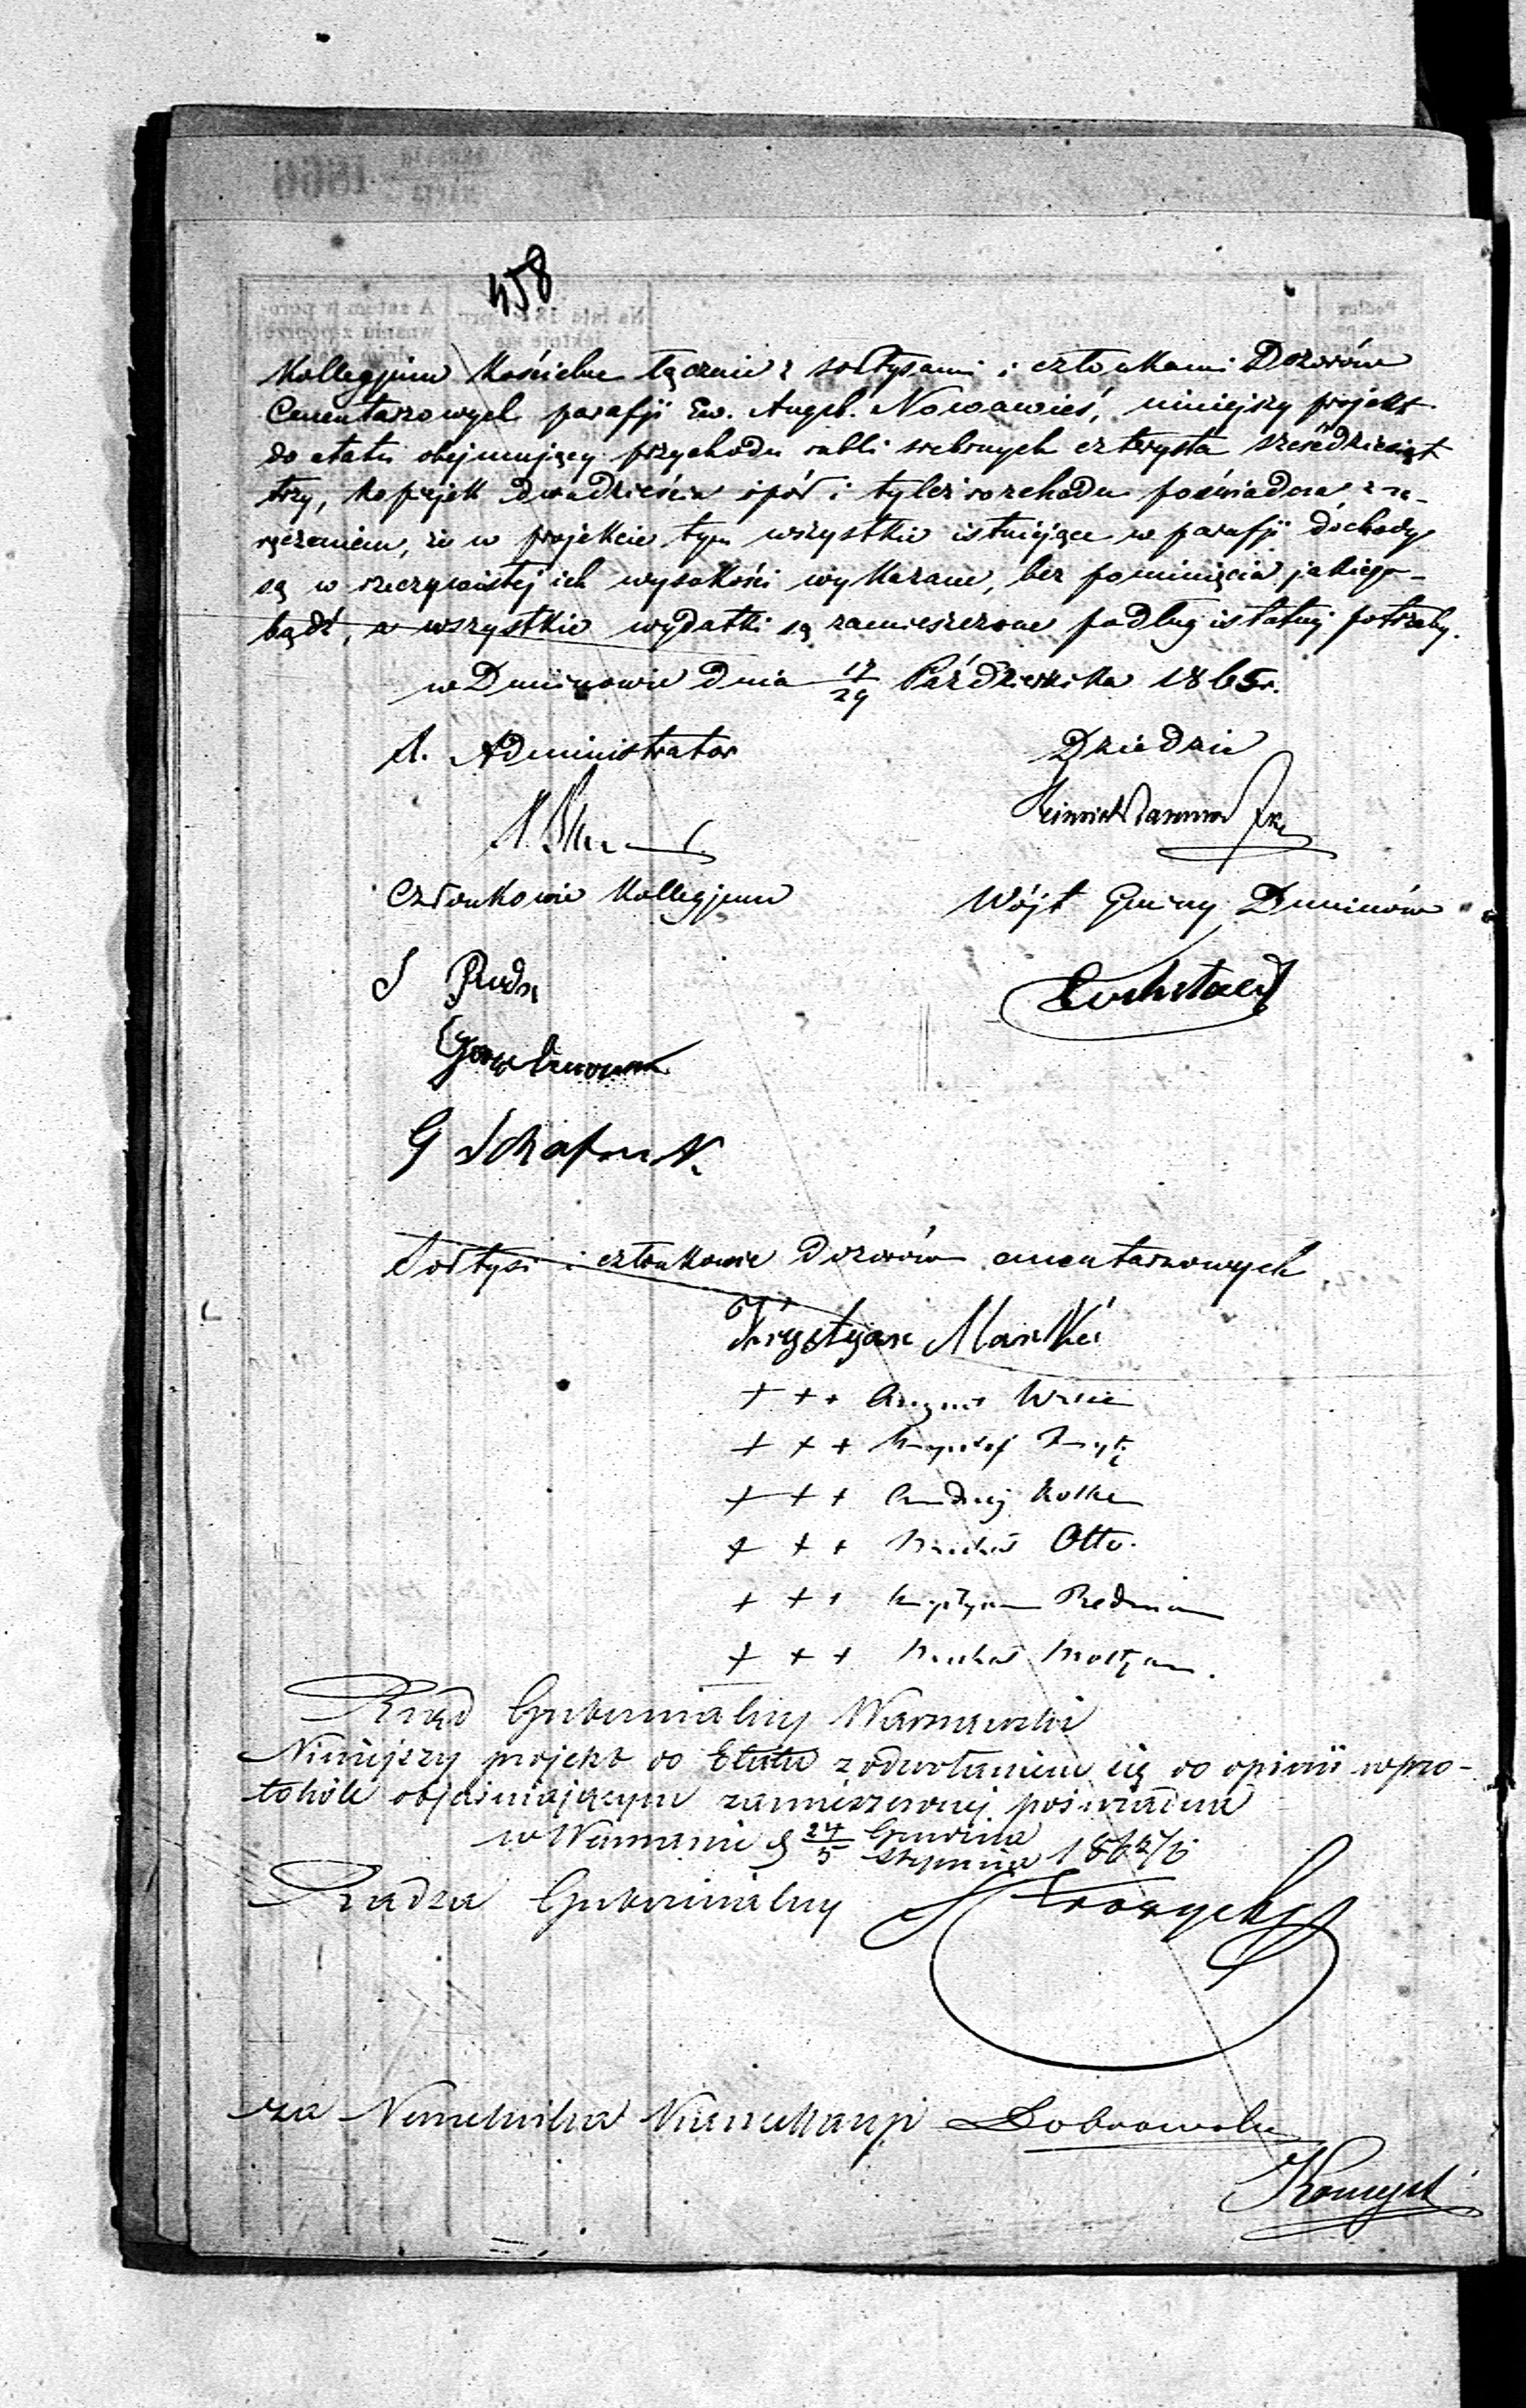 458
Kollegjum Kościelne łącznie z sołtysami i członkami Dozorów
Cmentarzowych parafji Ew. Augsb. Nowawieś, niniejszy projekt
do etatu obejmujący przychodu rubli srebrnych czterysta sześćdziesiąt
trzy, kopijek dwadzieścia i pół i tyleż rozchodu poświadcza z za-
ręczeniem, że w projekcie tym wszystkie istniejące w parafji dochody
są w rzeczywistej ich wysokości wykazane, bez pominięcia jakiego-
bądź, a wszystkie wydatki są zamieszczone podług istotnej potrzeby.
w Duninowie dnia 17/29 Października 1865 r.
A. Administrator
Dziedzic
Członkowie Kollegjum
Wójt Gminy Duninów
G
Sołtysi i członkowie dozorów cmentarzowych
Krystyan
+ + + August
+ + +
+ + + Andrej
+ + + Michał Otto
+ + + Krystyan
+ + + Michał
Rząd Gubernialny Warszawski
Niniejszy projekt do Etatu z odwołaniem się do opinii w pro-
tokóle objaśniającym zamieszczonej poświadcza
w Warszawie d 24/5 Grudnia/Stycznia 1865/6
Radca Gubernialny
za Naczelnika Kancellaryi